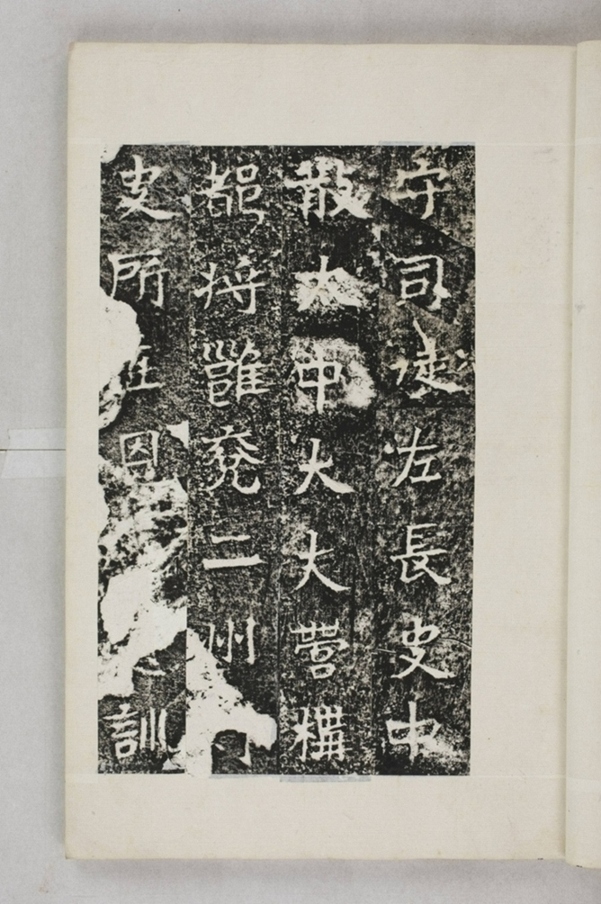 守司徒左長史中
散大中大大營構
都将雝兖二州
史所在恩訓